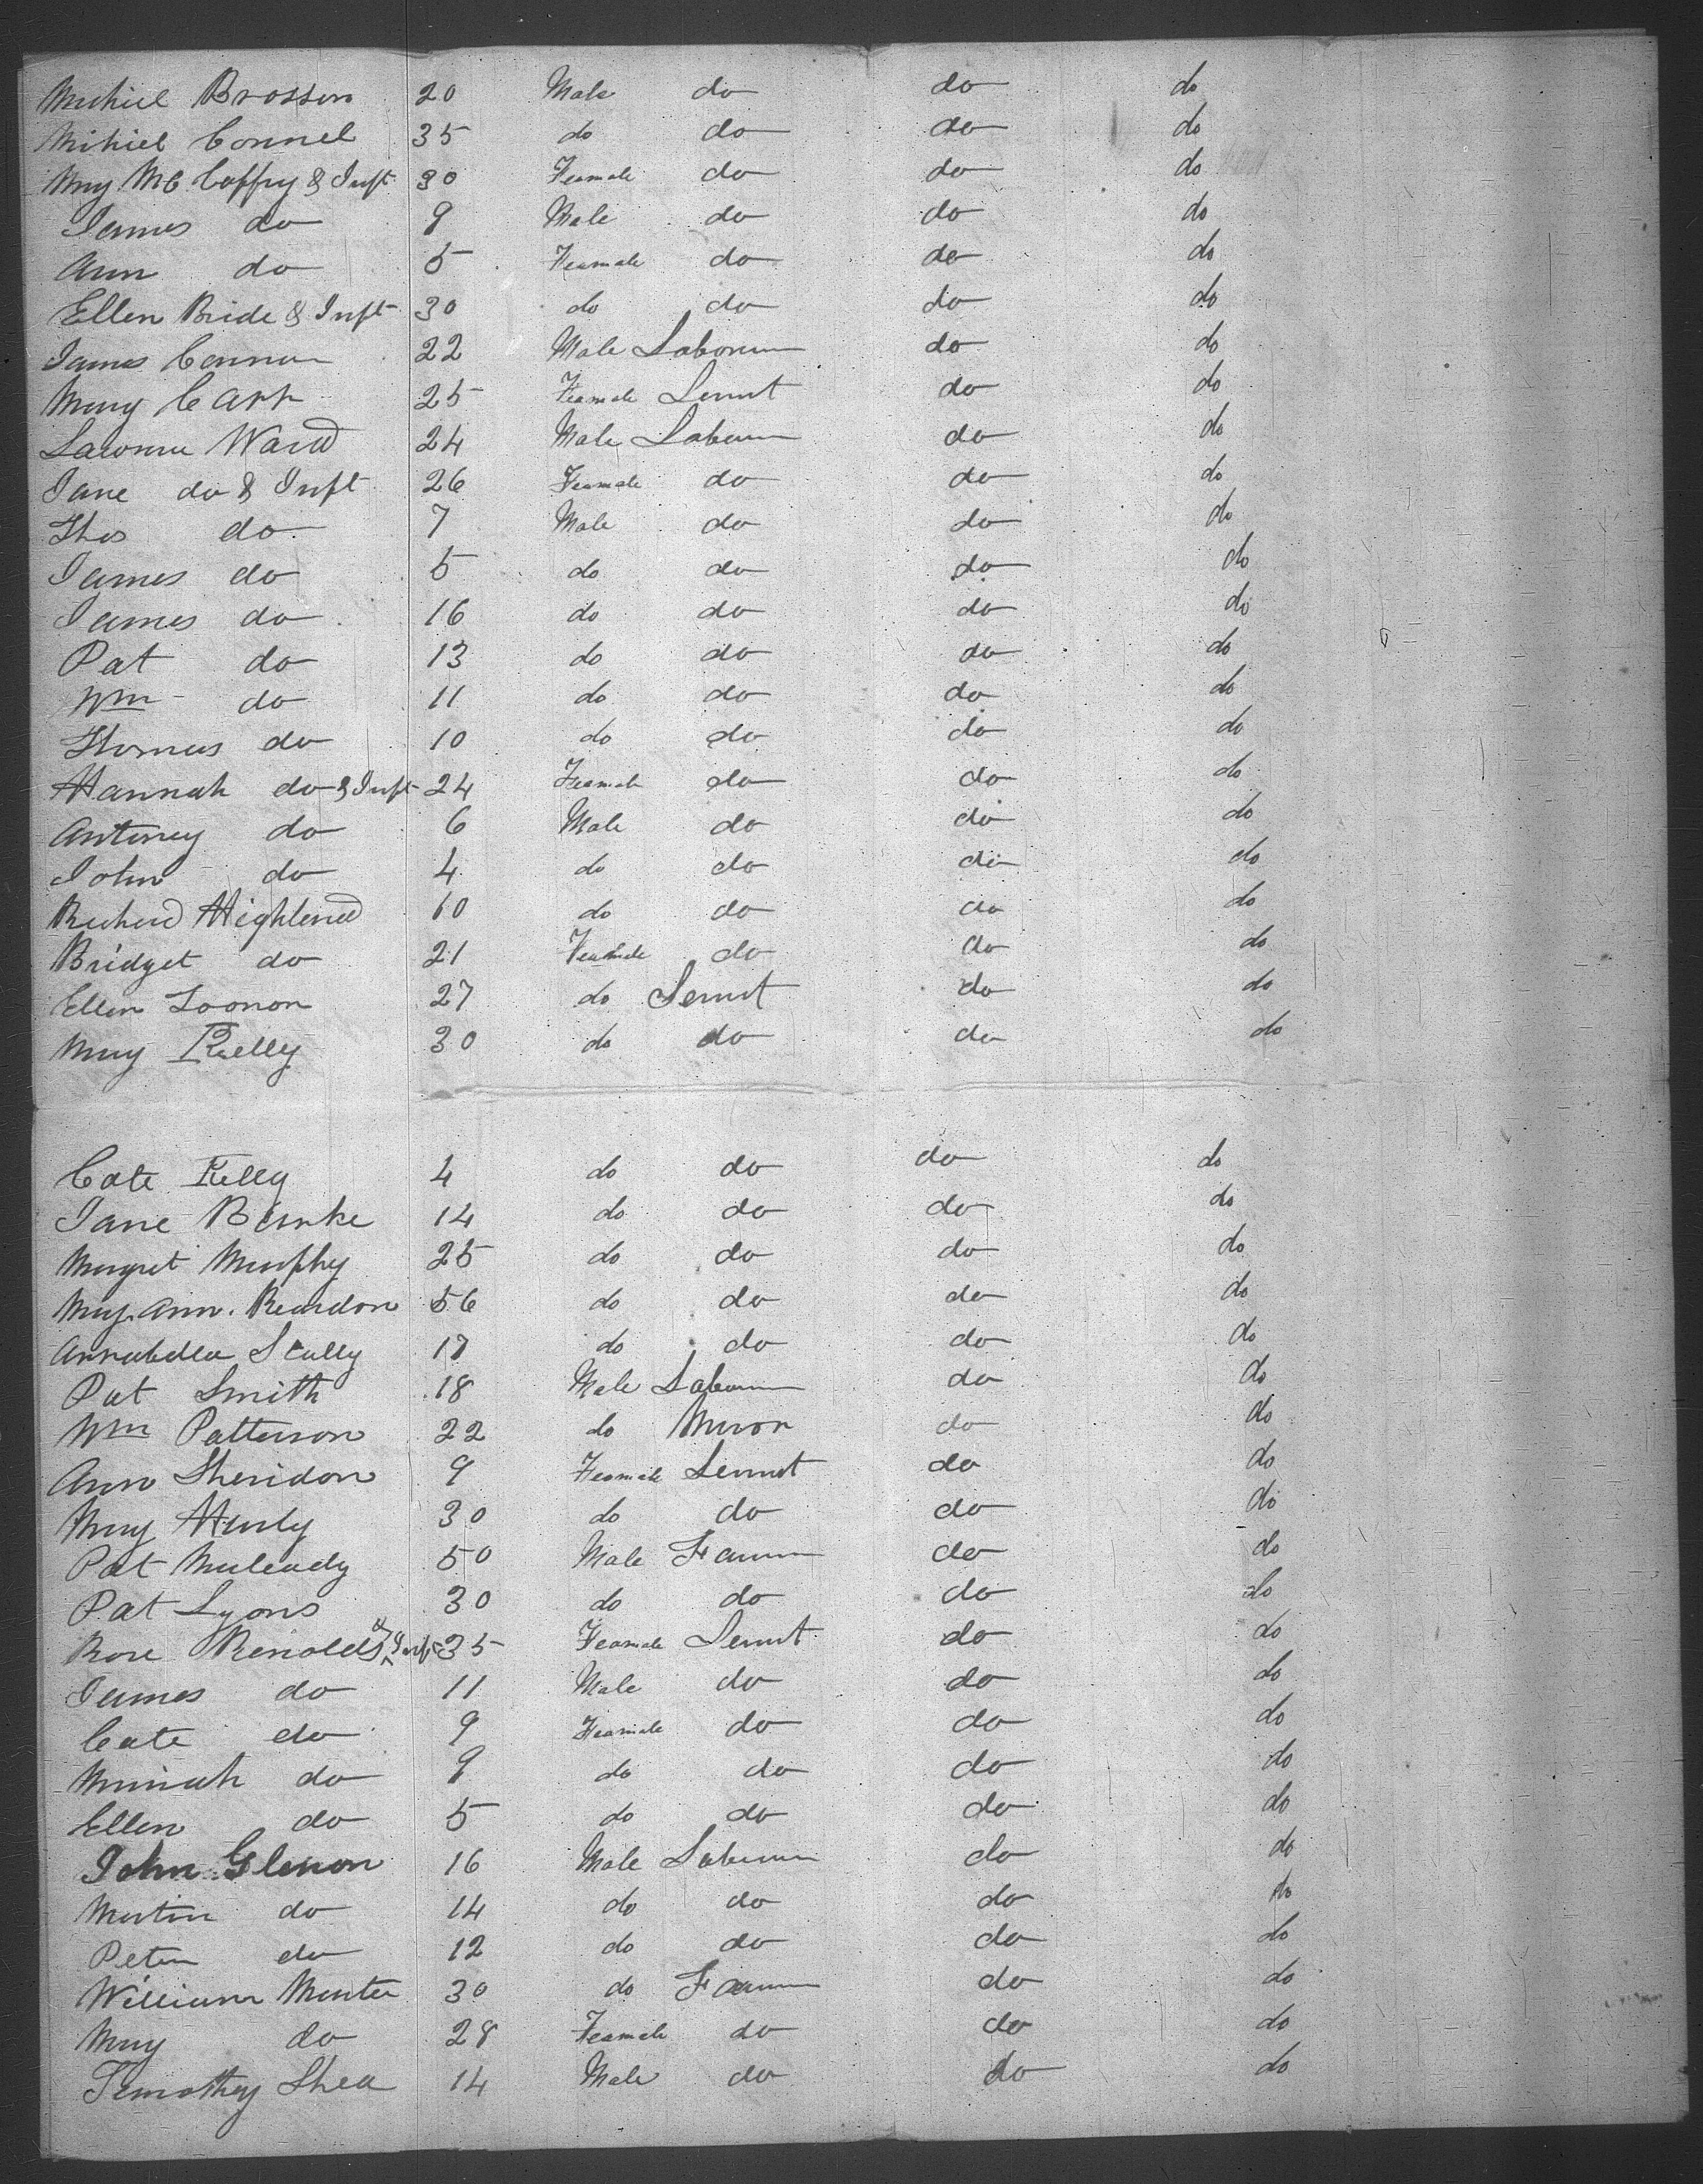 Michiel Brossen 20 Male do do do
Mihiel Connel 35 do do do do
Mary Mc Caffry & Inft 30 Feamale do do do
James do 9 Male do do do
Ann do 5 Feamale do do do
Ellen Bride & Inft 30 do do do do
James Cannon 22 Male Laborer do do
Mary Carr 25 Feamale Servnt do do
Ward 24 Male Laborer do do
Jane do & Inft 26 Feamale do do do
Thos do 7 Male do do do
James do 5 do do do do
James do 16 do do do do
Pat do 13 do do do do
Wm do 11 do do do do
Thomas do 10 do do do do
Hannah do & Inft 24 Feamale do do do
Antiney do 6 Male do do do
John do 4 do do do do
Richard Highland 60 do do do do
Bridget do 21 Feamale do do do
Ellen Loonon 27 do Servnt do do
Mary Kelly 30 do do do do
Cate Kelly 4 do do do do
Jane Burke 14 do do do do
Margret Murphy 25 do do do do
Mary Ann. Reardon 56 do do do do
Annabella Scully 17 do do do do
Pat Smith 18 Male Laborer do do
Wm Patterson 22 do Mason do do
Ann Sheridon 9 Feamale Servnt do do
Mary Hurly 30 do do do do
Pat Muleady 50 Male Farmer do do
Pat Lyons 30 do do do do
Rose Renolds & Inft 35 Feamale Servnt do do
James do 11 Male do do do
Cate do 9 Feamale do do do
do 9 do do do do
Ellen do 5 do do do do
John Glennon 16 Male Laborer do do
Martin do 14 do do do do
Peter do 12 do do do do
William 30 do Farmer do do
Mary do 28 Feamale do do do
Timothey Shea 14 Male do do do